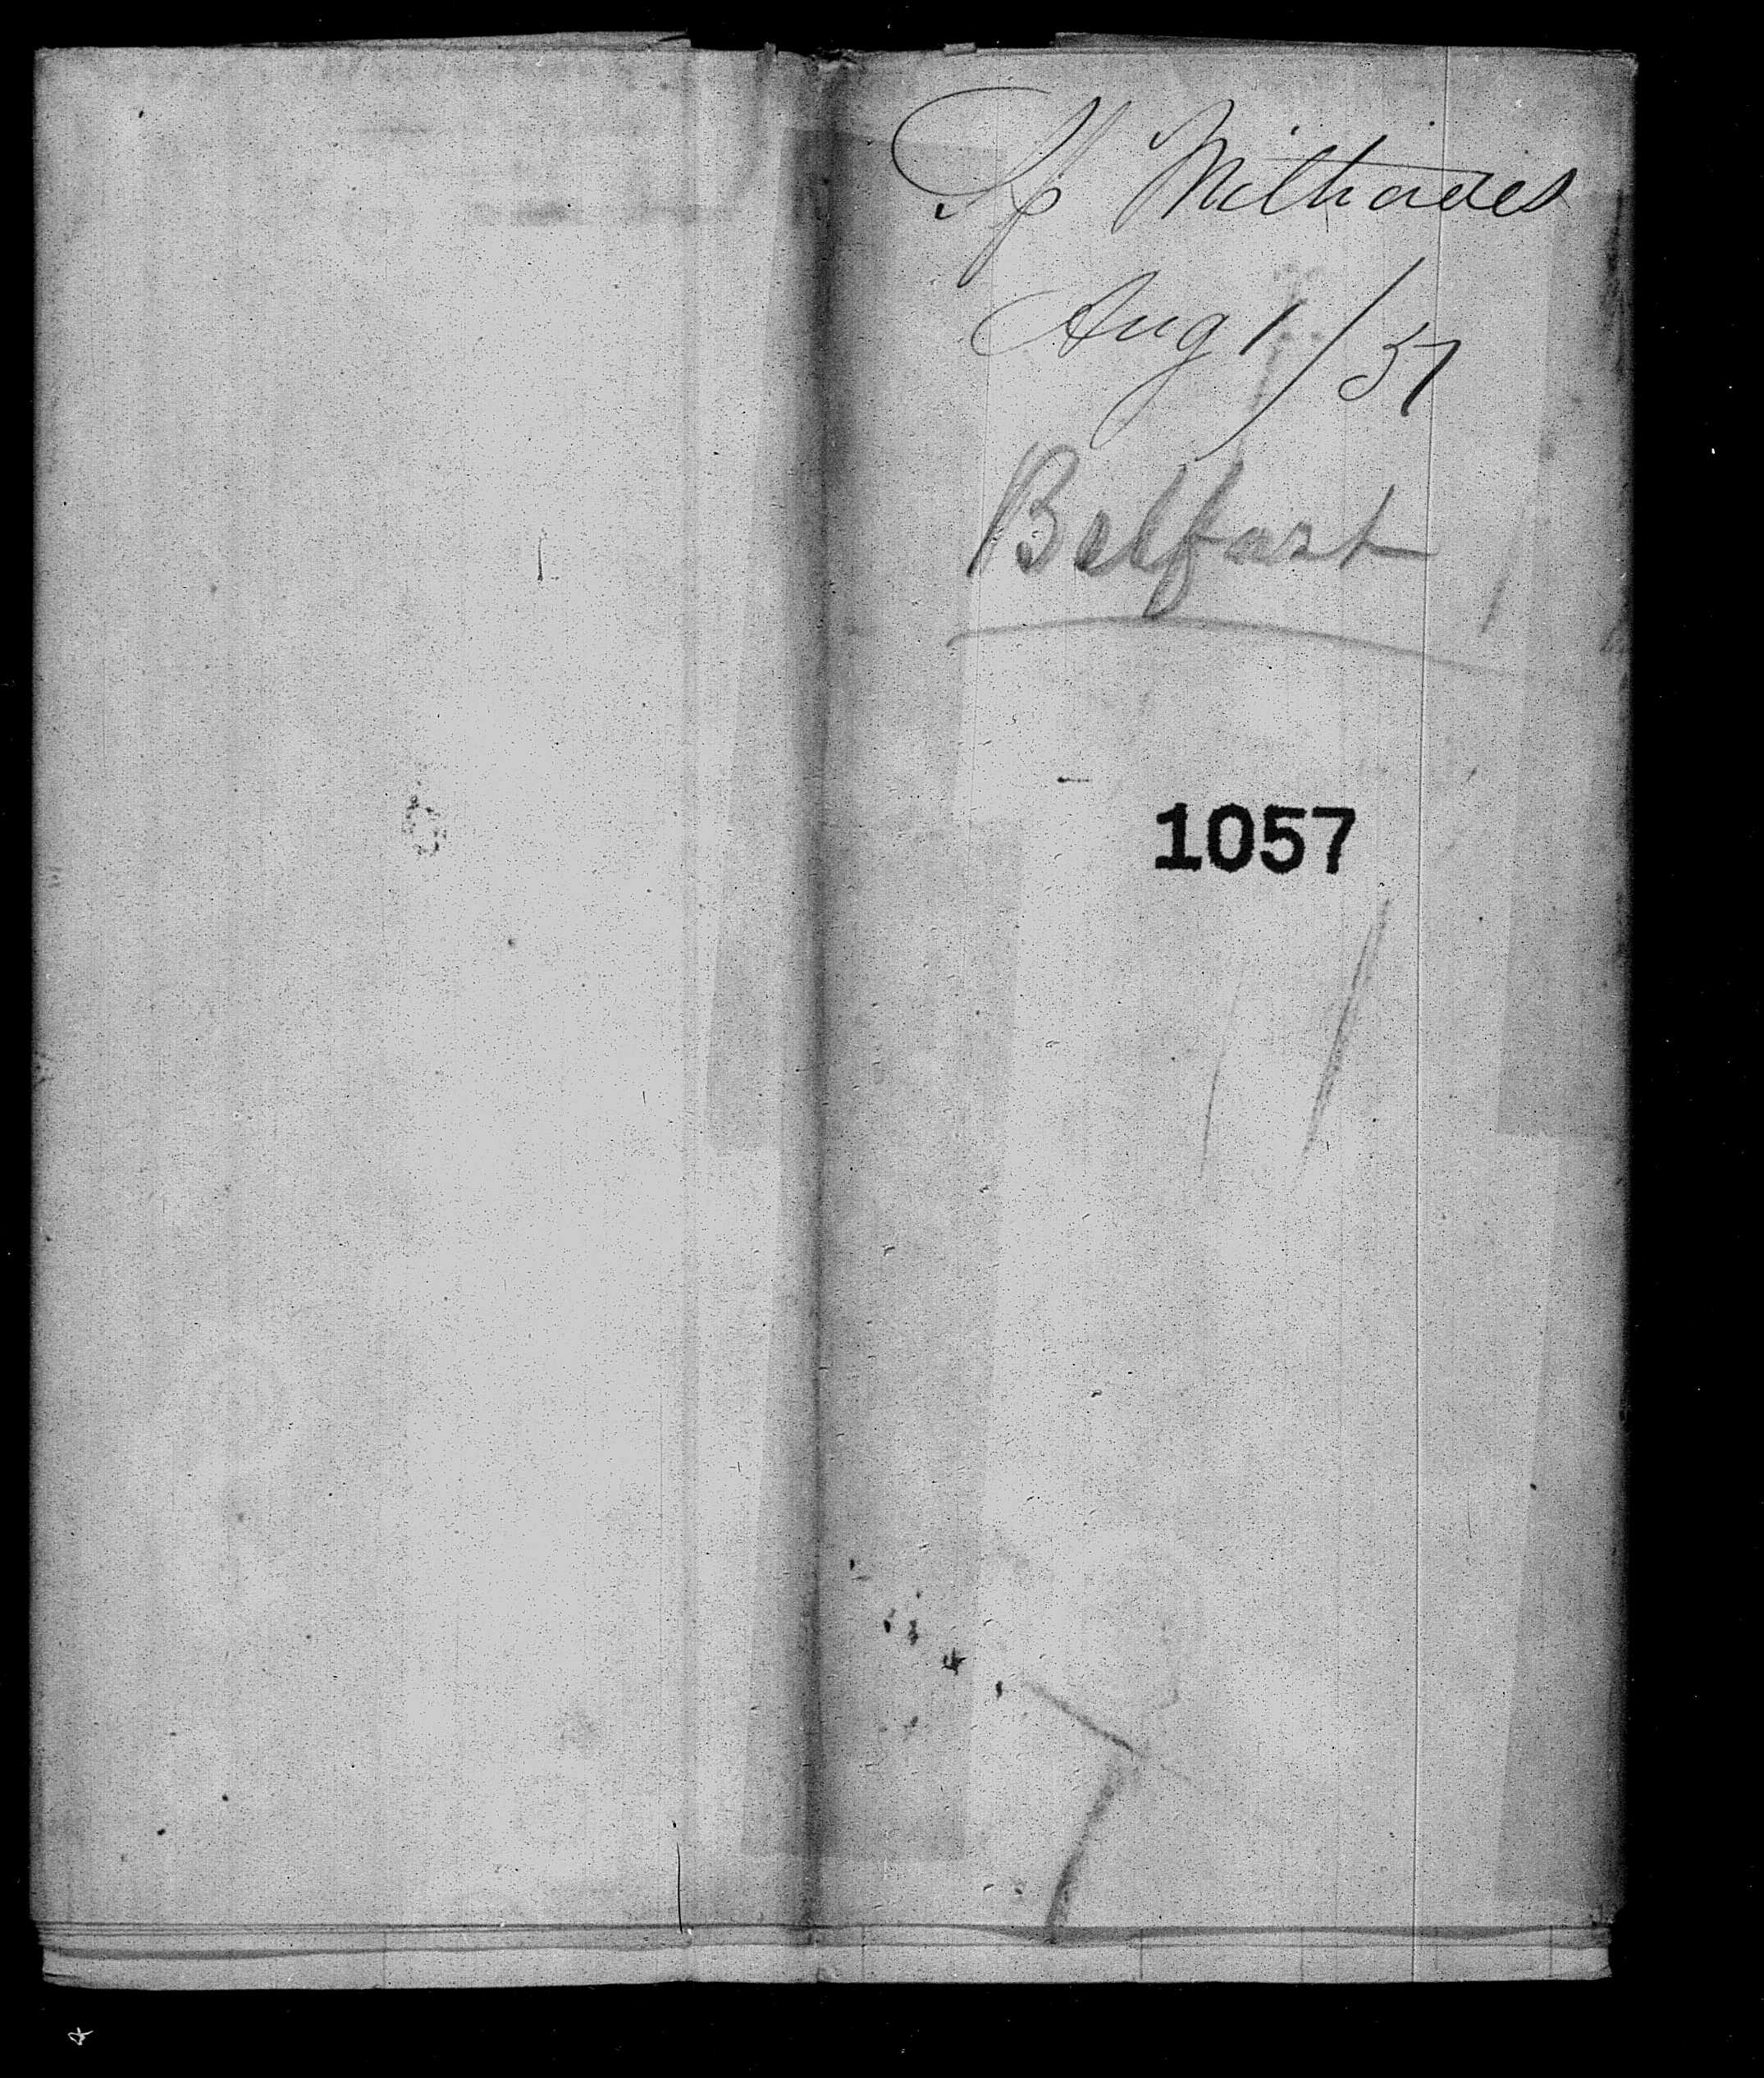 Sp Miltiades
Aug 1/57
Belfast
1057